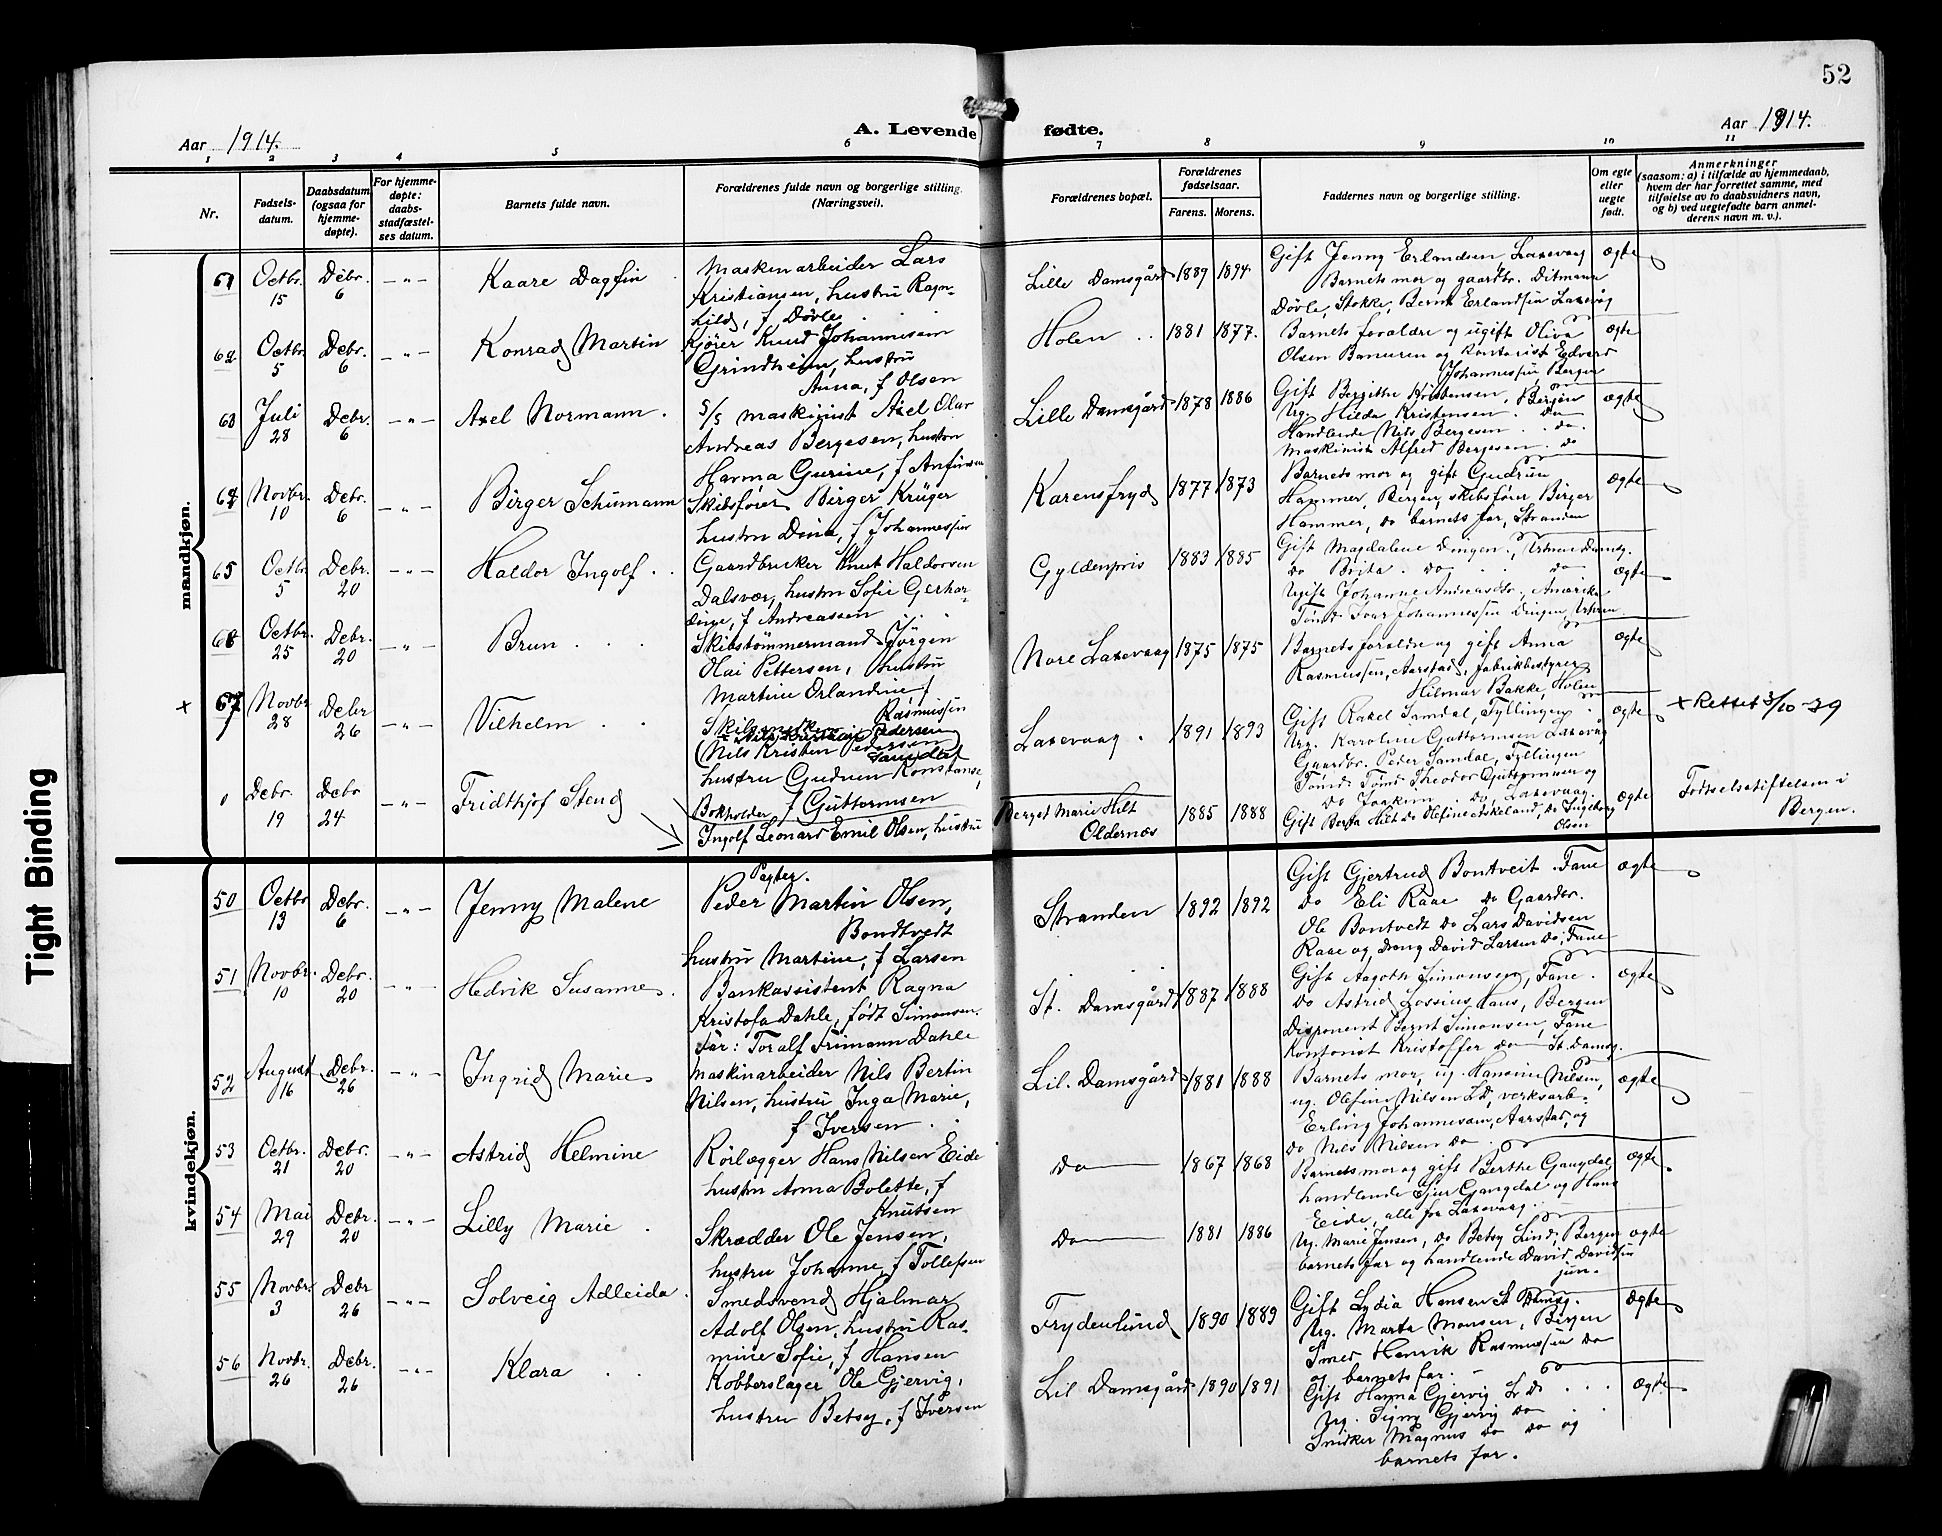 52
Aar 1914.
A. Levende fødte.
Aar 1914.
1 2 3 4 5 6 7 8 9 10 11
Nr.
Fødselsdatum.
Daabsdatum (ogsaa for hjemmedøpte).
For hjemmedøpte: daabsstadfæstelses datum.
Barnets fulde navn.
Forældrenes fulde navn og borgerlige stilling. (Næringsvei).
Forældrenes bopæl.
Forældrenes fødselsaar.
Farens. Morens.
Faddernes navn og borgerlige stilling.
Om egte eller uegte født.
Anmerkninger
(saasom: a) i tilfælde av hjemmedaab,
hvem der har forrettet samme, med
tilføielse av to daabsvidners navn,
og b) ved uegtefødte barn anmelderens navn m. v.).
mandkjøn.
61 Octbr. 15 Debr. 6 — " — Kaare Dagfin
Maskinarbeider Lars
Kristiansen, hustru Ragnhild, f Døvle
Lille Damsgård 1889 1894
Gift Jenny Erlandsen Laxevaag
Barnets mor og gaardbr. Ditmann
Døvle, Stokke, Bernt Erlandsen Laxevåg
ægte
62 Octbr. 5 Debr. 6 — " — Konrad Martin
Kjører Knud Johannesen
Grindheim, hustru
Anna, f Olsen
Holen 1881 1877.
Barnets forældre og ugift Oliva
Olsen og Kontorist Edvard
Johannessen Bergen
ægte
63 Juli 28 Debr. 6 — " — Axel Normann.
S/S maskinist Axel Olav
Andreas Bergesen, hustru
Hanna Gurine, f Anfinsen
Lille Damsgård 1878 1886
Gift Bergithe Kristensen, Bergen
Ug. Hilda Kristensen. do
Handlende Nils Bergesen. do.
Maskinist Alfred Bergesen. do
ægte
64 Novbr. 10 Debr. 6 — " — Birger Schumann
Skibsfører Birger Krüger
hustru Dina, f Johannessen
Karensfryd 1877 1873
Barnets mor og gift Gudrun
Hammer, Bergen, skibsfører Birger
Hammer, do barnets far, Stranden
ægte
65 Octbr. 5 Debr. 20 — " — Haldor Ingolf
Gaardbruker Knut Haldorsen
Dalsvær, hustru Sofie Gerhardine, f Andreassen
Gyldenpris 1883 1885
Gift Magdalene Dingen, Damsg.
do Brita do do
Ugift Johanne Andreasdtr, Amerika
Tømd. Ivar Johannessen Dingen
ægte
66 Octbr. 25 Debr. 20 — " — Brun
Skibstømmermand Jörgen
Olai Pettersen, hustru
Martine Orlandine, f
Rasmussen
Nore Laxevaag 1875 1875
Barnets forældre og gift Anna
Rasmussen, Aarstad, fabrikbestyrer
Hilmar Bakke, Holen
ægte
x 67 Novbr 28 Debr 26 — " — Vilhelm
Pedersen
(Nils Kristen Pedersen
Samdal
hustru Gudrun Konstanse,
f Guttormsen
Laxevaag 1891 1893
Gift Rakel Samdal, Fyllingen
Ug. Karoline Guttormsen Laxevaag
Gaardbr. Peder Samdal, Fyllingen
Tømd. Theodor Guttormsen og
do Joakim do, Laxevaag.
ægte
x Rettet 3/10-39
Debr. 19 Debr 24 — " — Fridthjof Steng
Bokholder
Ingolf Leonard Emil Olsen, hustru
Berget Marie Hilt
Oldernæs
1885 1888
Gift Berta Hilt do Olefine Askeland, do Ingeborg
Olsen
ægte
Fødselsstiftelsen i
Bergen.
kvindekjøn.
50 Octbr 13 Debr. 6 — " — Jenny Malene
Pagter.
Peder Martin Olsen,
Bondtvedt
hustru Martine, f Larsen
Stranden 1892 1892
Gift Gjertrud Bontveit. Fane
do Eli Raae do Gaardbr.
Ole Bontvedt do Lars Davidsen
Raae og dreng David Larsen do, Fane
ægte
51 Novbr. 10 Debr. 20 — " — Hedvik Susanne.
Bankassistent Ragna
Kristofa Dahle, født Simonsen.
Far: Toralf Frimann Dahle
St. Damsgård 1887 1888
Gift Aagoth Simonsen, Fane.
do Astrid Lossius Haus, Bergen
Disponent Bernt Simonsen, Fane
Kontorist Kristoffer do St. Damsg.
ægte
52 August 16 Debr. 26 — " — Ingrid Marie
Maskinarbeider Nils Bertin
Nilsen, hustru Inga Marie,
f Iversen
Lil. Damsgård 1881 1888
Barnets mor, ug. Hansine Nilsen,
ug. Olefine Nilsen L.D., verksarb.
Erling Johannesen, Aarstad, og
do Nils Nilsen do
ægte
53 Octbr. 21 Debr. 20 — " — Astrid Helmine
Rörlægger Hans Nilsen Eide
hustru Anna Bolette, f
Knutsen
do 1867 1868
Barnets mor og gift Berthe Gangdal,
handlende Sjur Gangdal og Hans
Eide, alle fra Laxevaag.
ægte
54 Mai 29 Debr. 20 — " — Lilly Marie
Skrædder Ole Jensen,
hustru Johanne, f Tollefsen
do 1881 1886
Ug. Marie Jensen, do Betsy Lind, Bergen
barnets far og handlende David Davidsen
jun.
ægte
55 Novbr. 3 Debr 26 — " — Solveig Adleida.
Smedsvend Hjalmar
Adolf Olsen, hustru Rasmine Sofie, f Hansen
Frydenlund 1890 1889
Gift Lydia Hansen St Damsg.
Ug. Marta Monsen, Bergen
Smed Henrik Rasmussen do
og barnets far.
ægte
56 Novbr. 26 Debr. 26 — " — Klara
Kobberslager Ole Gjervig,
hustru Betsy, f Iversen
Lil Damsgård 1890 1891
Gift Hanna Gjervig L. D.
Ug. Signy Gjervig do
Snidker Magnus do do og
barnets far.
ægte
Tight Binding